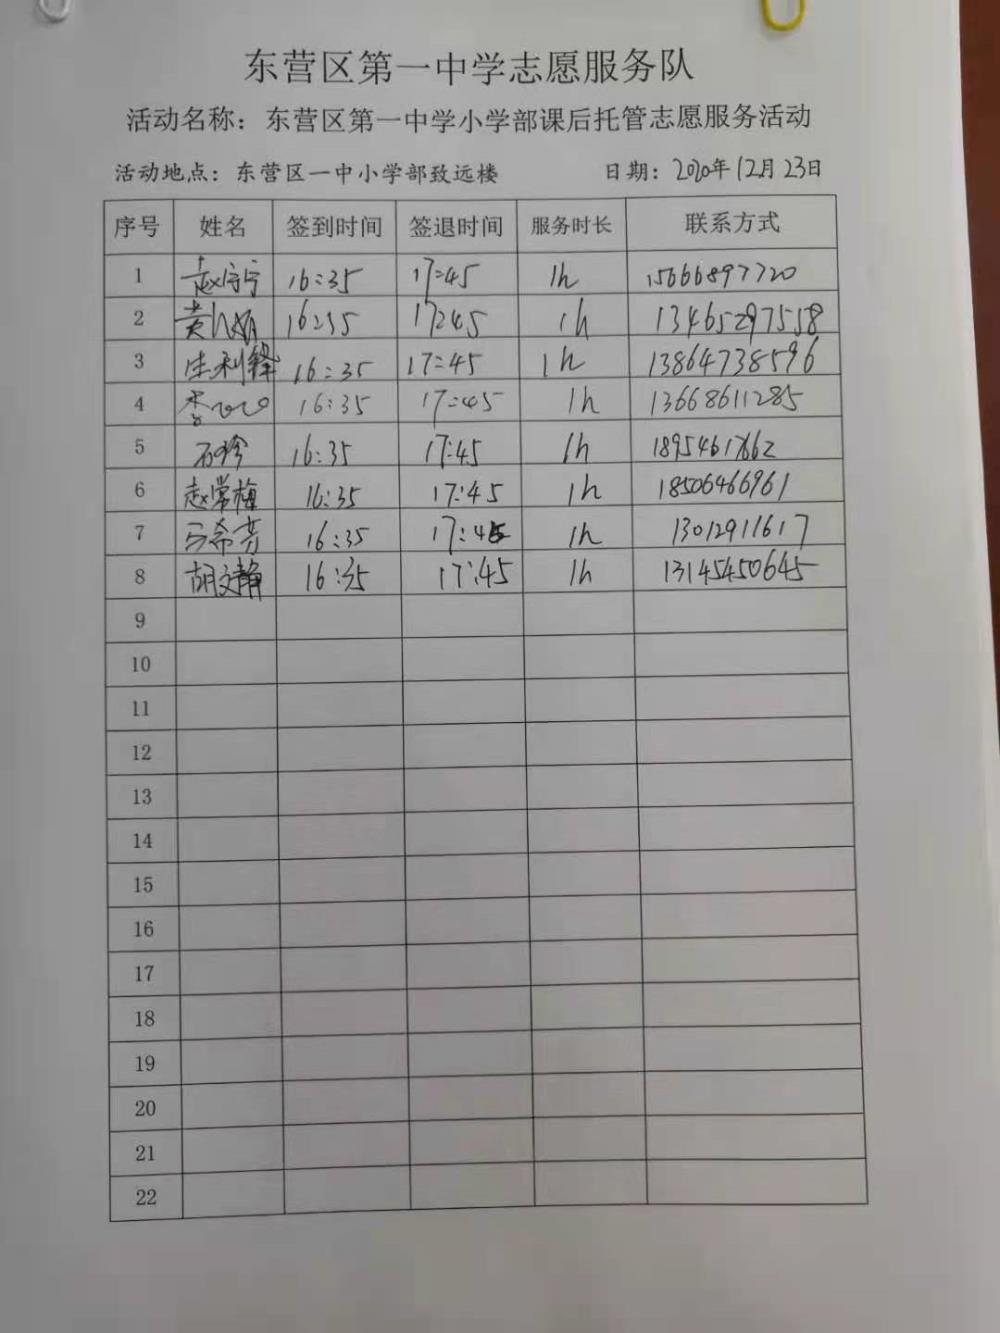 东营区第一中学志愿服务队
活动名称：东营区第一中学小学部课后托管志愿服务活动
活动地点：东营区一中小学部致远楼 日期：2020年12月23日
序号 姓名 签到时间 签退时间 服务时长 联系方式
1 赵宁宁 16:35 17:45 1h 15666897720
2 黄 娟 16:35 17:45 1h 13465297558
3 生利锋 16:35 17:45 1h 13864738596
4 李 16:35 17:45 1h 13668611285
5 石玲 16:35 17:45 1h
6 赵常梅 16:35 17:45 1h 18506466961
7 希芳 16:35 17:45 1h 13012911617
8 胡文静 16:35 17:45 1h 13145450645
9
10
11
12
13
14
15
16
17
18
19
20
21
22